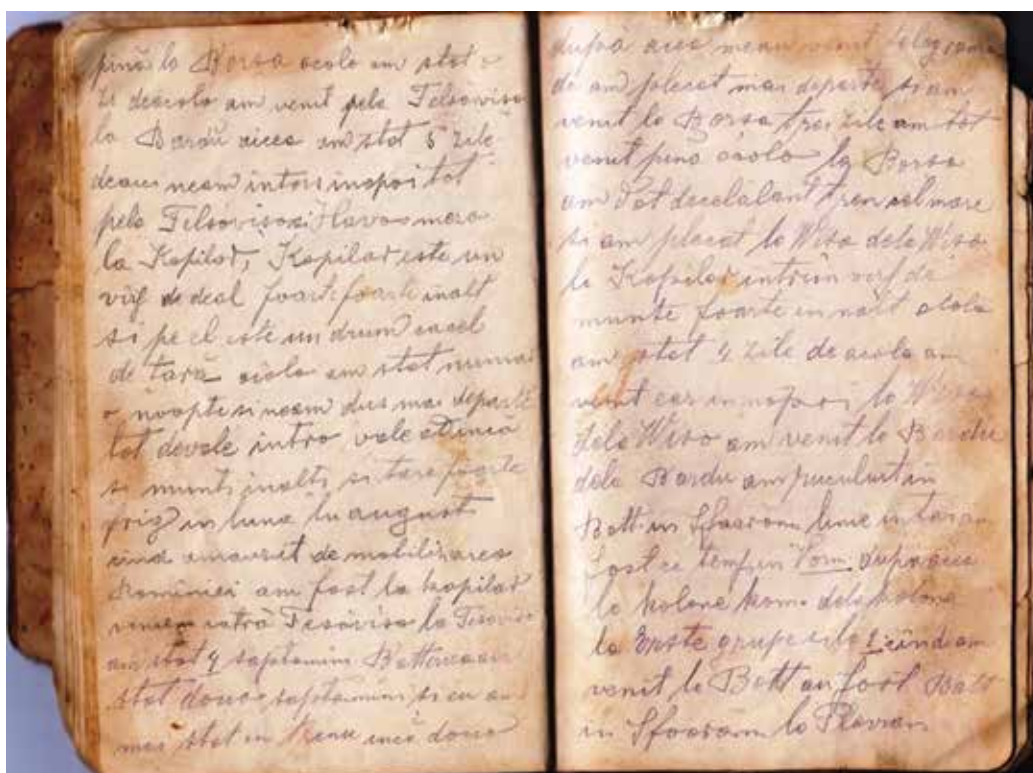 pină la Borsa acolo am stat o
zi deacolo am venit pela Felsoviso
la Bardu aicea am stat 5 zile
deaici neam intors inapoi tot
pela Felsoviso si Havas mezo
la Kapilas, Kapilas este un
virf de deal foarte foarte inalt
si pe el este un drum cacel
de tară acolo am stat numai
o noapte si neam dus mai departe
tot devale intro vale atincă
si munti inalti si tare foarte
frig in luna lu august
cind amauzit de mobilizarea
Rominiei am fost la Kapilas
veniem catră Fesoviso la Fesoviso
am stat 4 saptamini
stat doua saptamini si eu am
mai stat in trenu incă doua
dupa aceea meau venit telegrama
de am plecat mai departe si am
venit la Borsa trei zile am tot
venit pina acolo la Borsa
am dat decelalant tren cel mare
si am plecat la Wiso dela Wiso
la Kapilas intrun virf de
munte foarte innalt acolo
am stat 4 zile de acolo am
venit ear innapoi la Wiso
dela Wiso am venit la Bardu
dela Bardu am in
Bătt in linie
fost ce temp in dupaaceea
la kolone dela kolone
la Erste grupe si la 1 cind am
venit la Batt au fost Batt
in la